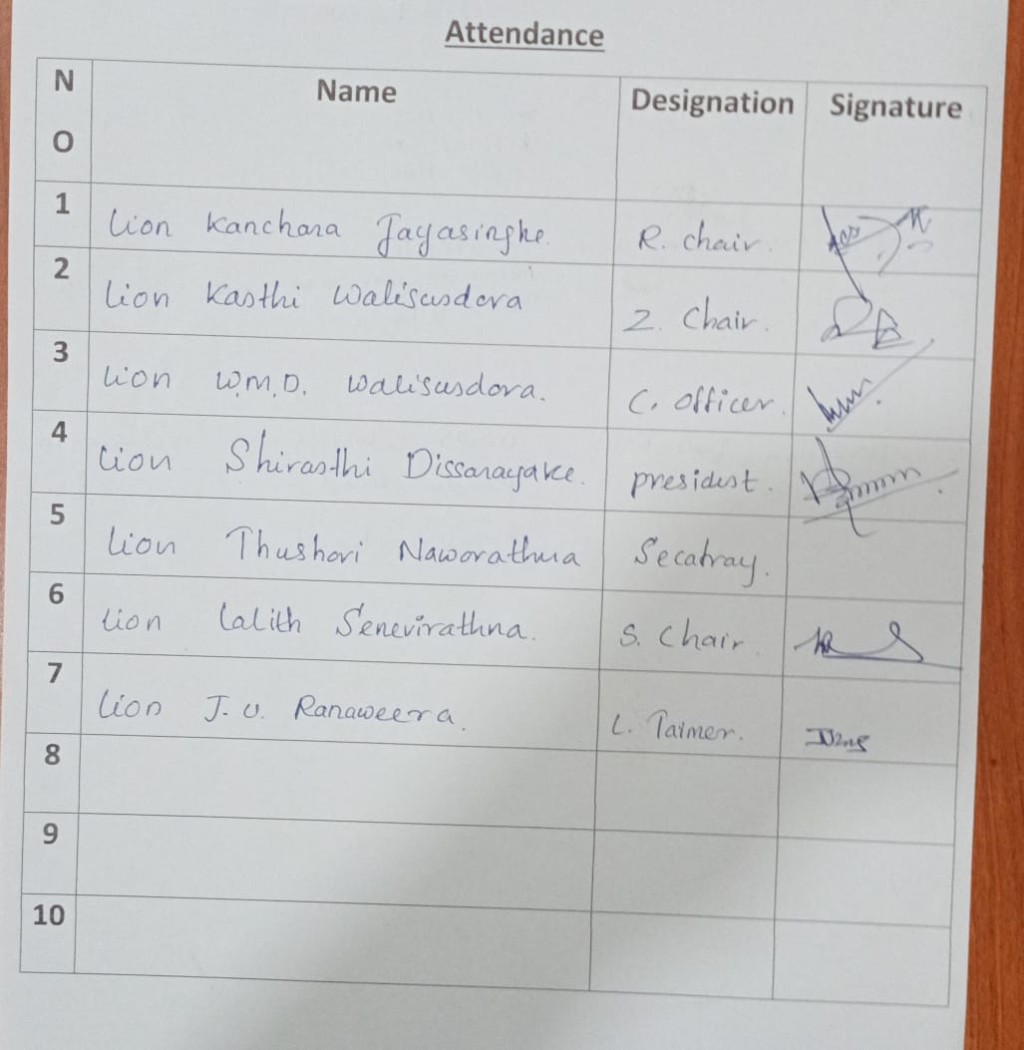 Attendance
NO Name Designation Signature
1 Lion Kanchana Jayasinghe. R. Chair.
2 Lion Kasthi Walisusdora Z. Chair.
3 Lion W.M.D. Walisusdora. C. Officer.
4 Lion Shirasthi Dissanayake. president.
5 Lion Thushari Naworathna Secatray.
6 Lion Lalith Senevirathna. S. Chair.
7 Lion J. U. Ranaweera. L. Taimer.
8
9
10